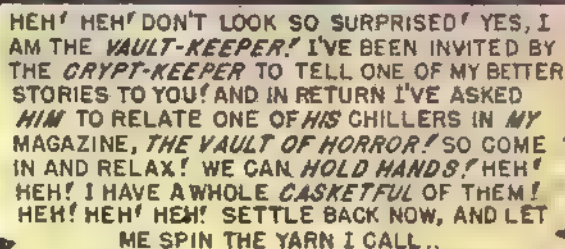 HEH! HEH! DON'T LOOK SO SURPRISED! YES, I
AM THE VAULT-KEEPER! I'VE BEEN INVITED BY
THE CRYPT-KEEPER TO TELL ONE OF MY BETTER
STORIES TO YOU! AND IN RETURN I'VE ASKED
HIM TO RELATE ONE OF HIS CHILLERS IN MY
MAGAZINE, THE VAULT OF HORROR! SO COME
IN AND RELAX! WE CAN HOLD HANDS! HEH!
HEH! I HAVE A WHOLE CASKETFUL OF THEM!
HEH! HEH! HEH! SETTLE BACK NOW, AND LET
ME SPIN THE YARN I CALL..